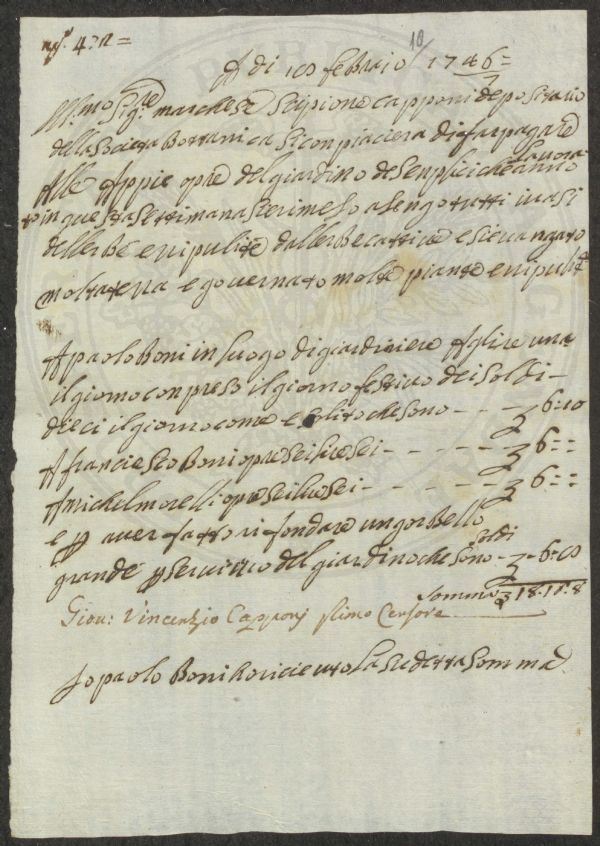 10
A di 10 febraio 1746=
7
Ill.mo Sig.re marchese Scipione Capponi depositario
della Società Bottanica Si conpiacera di far pagare
Alle Appie opre del giardino de Senplici che anno lavora
to in questa Settimana
delle rbe e ripulite dalle rbe cattive e si e vangato
molta terra e governato molte piante e ripulite
A paolo Boni in luogo di giardiniere A lire una
il giorno conpreso il giorno festivo dei Soldi
dieci il giorno come e Solito che sono - - - 6=10
A franciesco Boni opre Sei lire Sei - - - - - - 6= =
A michel morelli opre Sei lire Sei - - - - - - 6= =
e p aver fatto rifondare un gorbello
grande p servitio del giardino che sono - Soldi - 6=
Somma 18.11.8
Giov: Vincenzio Capponj Primo Censore
Io paolo Boni Ho ricieuto La Sudetta Somma